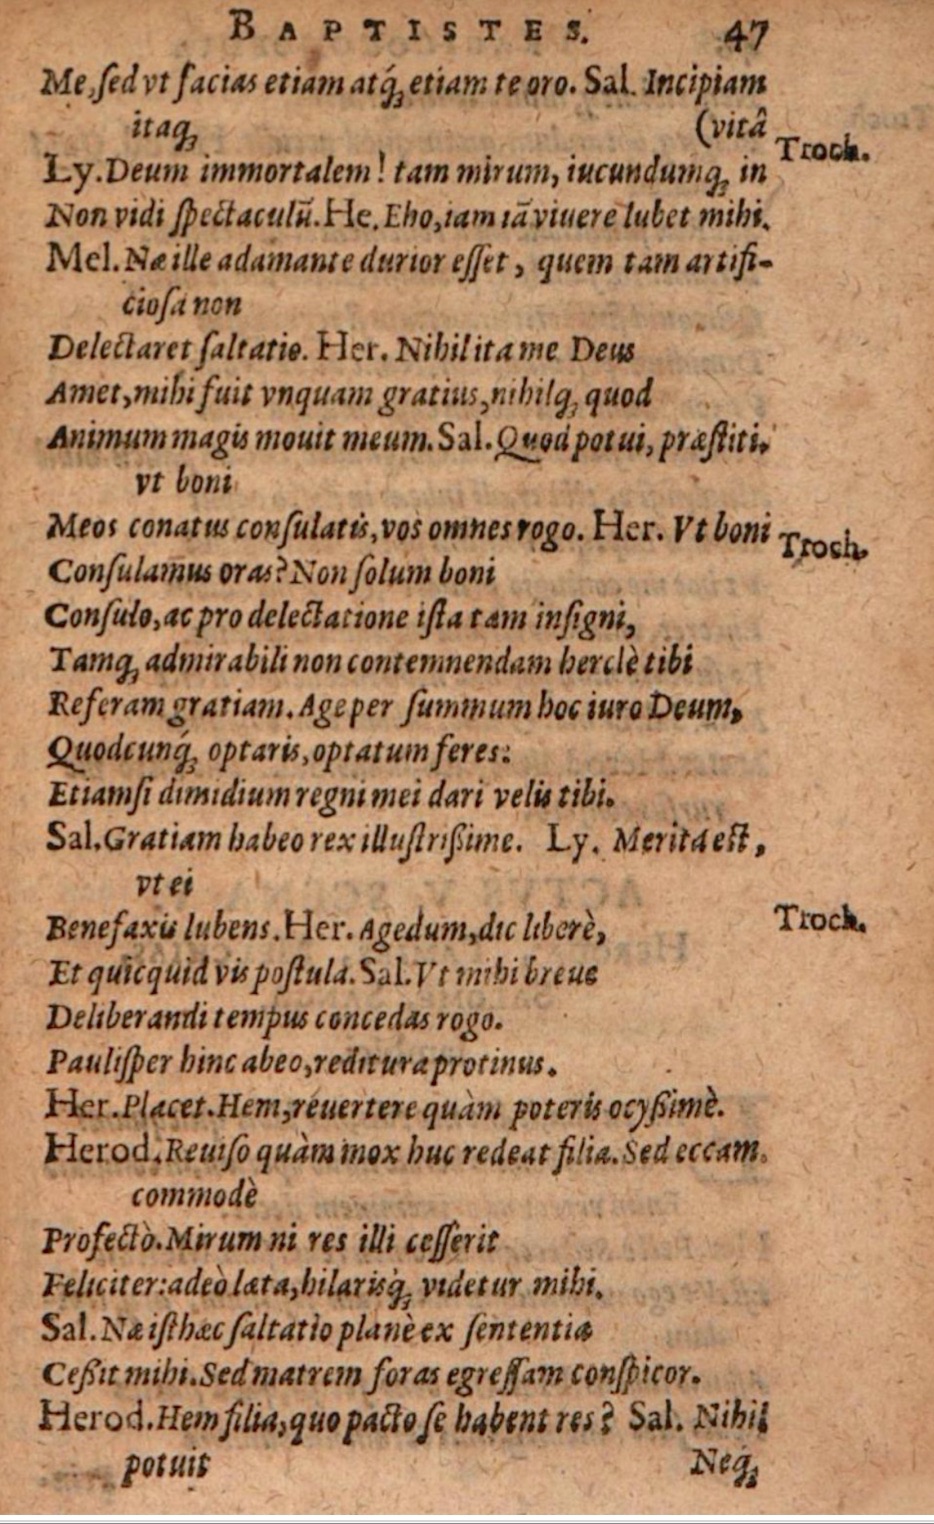 BAPTISTES. 47
Me, ſed vt facias etiam atq́ꝫ etiam te oro. Sal. Incipiam
itaqꝫ (vitâ
Troch.
Ly. Deum immortalem! tam mirum, iucundumqꝫ in
Non vidi ſpectaculũ. He. Eho, iam iã viuere lubet mihi.
Mel. Næ ille adamante durior eſſet, quem tam artifi-
cioſa non
Delectaret ſaltatio. Her. Nihil ita me Deus
Amet, mihi fuit vnquam gratius, nihilqꝫ quod
Animum magis mouit meum. Sal. Quod potui, præſtiti.
vt boni
Meos conatus conſulatis, vos omnes rogo. Her. Vt boni
Troch.
Conſulamus oras? Non ſolum boni
Conſulo, ac pro delectatione iſta tam inſigni,
Tamqꝫ admirabili non contemnendam herclè tibi
Referam gratiam. Age per ſummum hoc iuro Deum,
Quodcunq́ꝫ optaris, optatum feres:
Etiamſi dimidium regni mei dari velis tibi.
Sal. Gratiam habeo rex illuſtrißime. Ly. Merita eſt,
vt ei
Benefaxis lubens. Her. Agedum, dic liberè,
Troch.
Et quicquid vis poſtula. Sal. Vt mihi breue
Deliberandi tempus concedas rogo.
Pauliſper hinc abeo, reditura protinus.
Her. Placet. Hem, reuertere quàm poteris ocyßimè.
Herod. Reuiſo quàm mox huc redeat filia. Sed eccam.
commodè
Profectò. Mirum ni res illi ceſſerit
Feliciter: adeò læta, hilarisq́ꝫ videtur mihi.
Sal. Næ iſthæc ſaltatio planè ex ſententia
Ceßit mihi. Sed matrem foras egreſſam conſpicor.
Herod. Hem filia, quo pacto ſe habent res? Sal. Nihil
potuit Neqꝫ